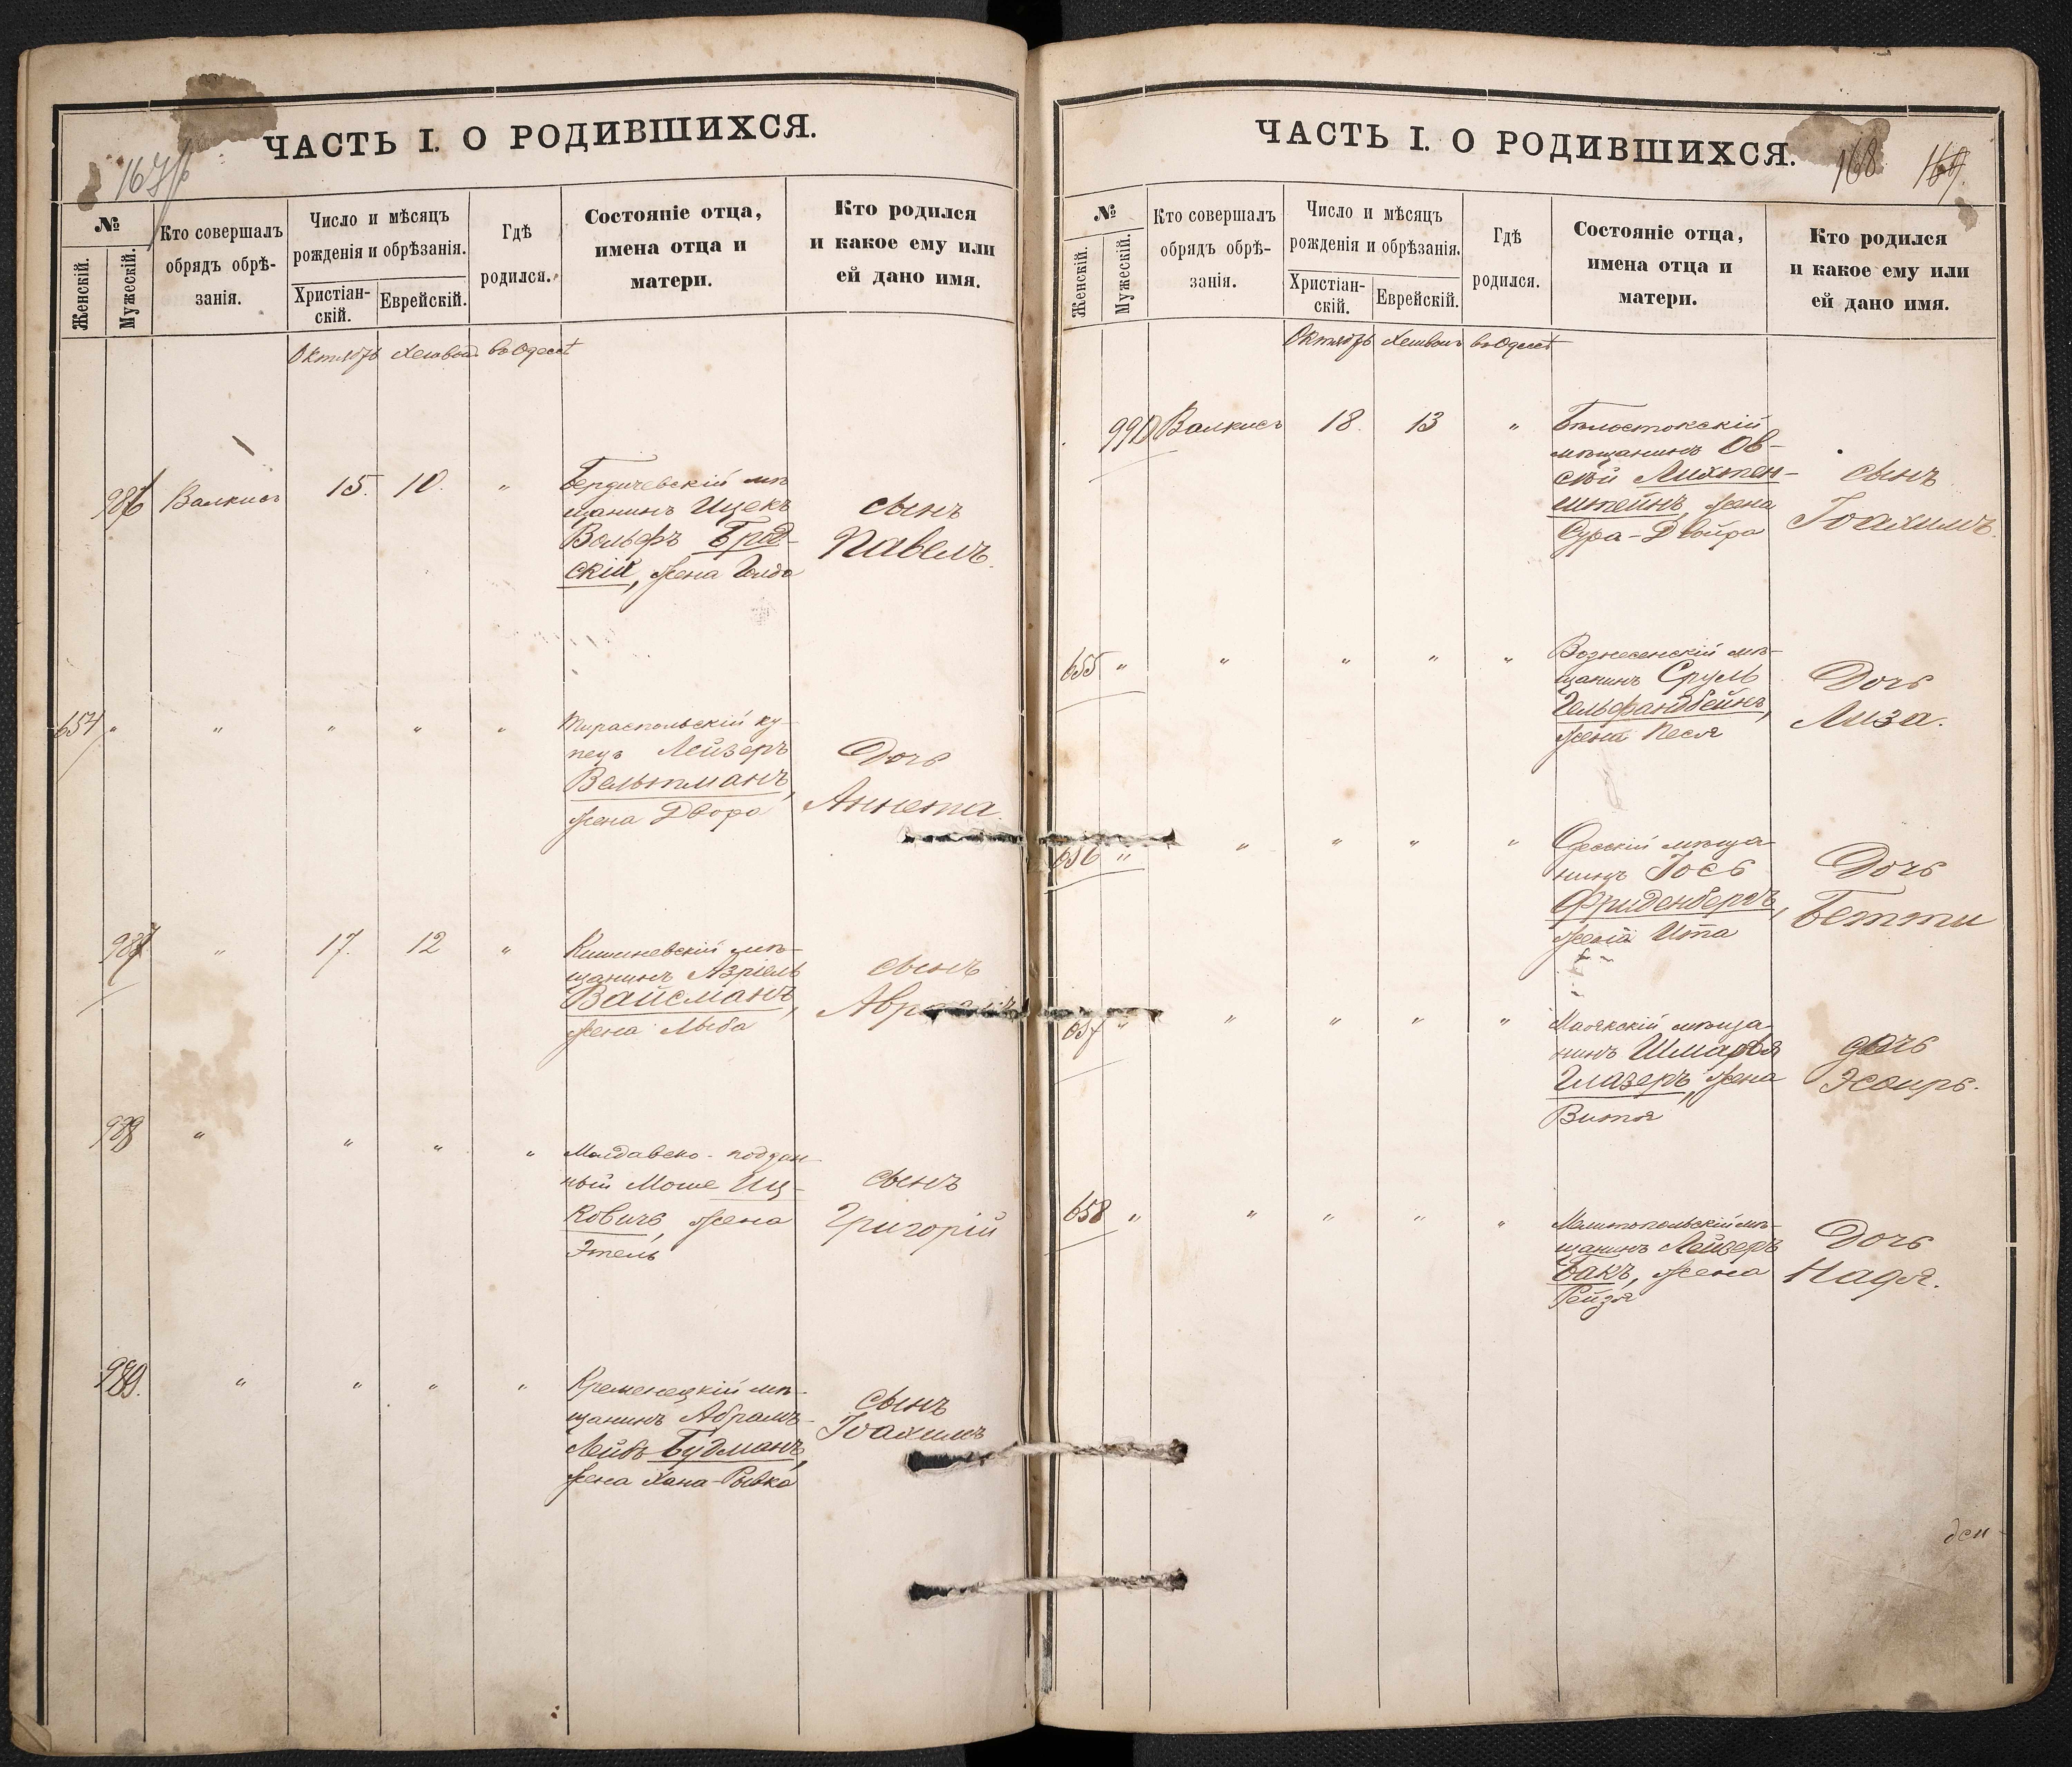 ЧАСТЬ I. О РОДИВШИХСЯ.
№
Женскій.
Мужескій.
Кто совершалъ
обрядъ обрѣ-
занія.
Число и мѣсяцъ
рожденія и обрѣзанія.
Христіан-
скій.
Еврейскій.
Гдѣ
родился.
Состояніе отца,
имена отца и
матери.
Кто родился
и какое ему или
ей дано имя.
Октябрь Хешван въ Одессѣ
986 Валкисъ 15. 10. „
Бердичевскій мѣ-
щанинъ Ицекъ
Вольфъ Брод-
скій, жена Голда
сынъ
Павелъ.
654 „ „ „ „ „
Тираспольскій ку-
пецъ Лейзеръ
Вельтманъ,
жена Двора
Дочь
Аннета.
987 „ 17. 12 „
Кишиневскій мѣ-
щанинъ Азріель
Вайсманъ,
жена Лыба
сынъ
988 „ „ „ „
Молдавско-поддан-
ный Моше Иц-
ковичъ, жена
Этель
сынъ
Григорій
989. „ „ „ „
Кременецкій мѣ-
щанинъ Абрамъ-
Лейбъ Будманъ,
жена Хана-Рывка
сынъ
Іоахимъ
ЧАСТЬ I. О РОДИВШИХСЯ.
168 169.
№
Женскій.
Мужескій.
Кто совершалъ
обрядъ обрѣ-
занія.
Число и мѣсяцъ
рожденія и обрѣзанія.
Христіан-
скій.
Еврейскій.
Гдѣ
родился.
Состояніе отца,
имена отца и
матери.
Кто родился
и какое ему или
ей дано имя.
Октябрь Хешван въ Одессѣ
990 Валкисъ 18. 13 „
Бѣлостокскій
мѣщанинъ Ов-
сѣй Лихтен-
штейнъ, жена
Сура-Двойра
сынъ
Іоахимъ.
655 „ „ „ „ „
Вознесенскій мѣ-
щанинъ Сруль
Гельфандбейнъ,
жена Песя
Дочь
Лиза.
656 „ „ „ „ „
Одесскій мѣща-
нинъ Іось
Фриденбергъ,
жена Ита
Дочь
Бетти
657 „ „ „ „ „
Маякскій мѣща-
нинъ Шмарья
Глазеръ, жена
Витя
дочь
Эсѳирь.
658 „ „ „ „ „
Мелитопольскій мѣ-
щанинъ Лейзеръ
Бакъ, жена
Рейзя
Дочь
Надя.